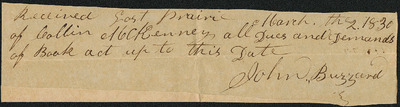 Recieved Gos Prairie March the 2. 1830
of Collin McKenney all Dues and Demands
of Book act up to this Date
John Buzzard